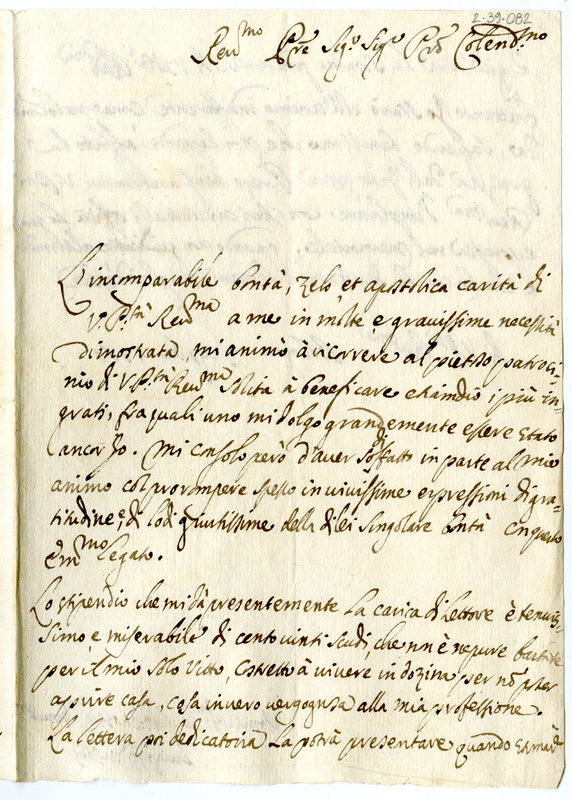 2-39-082
Reu.mo P̃re Sig.r Sig.r P̃rõ Colend.mo
L'incomparabile bontà, zelo et apostolica carità di
V. P.tà Reu.ma a me in molte e grauissime necessità
dimostrata, mi animò à ricorrere al pietoso patroci-
nio di V P.tà Reu.ma solita à beneficare etiamdio i più in-
grati, fra quali uno mi dolgo grandemente essere stato
ancor Io. Mi consolo però d'auer sodisfatto in parte al mio
animo col prorompere spesso in viuissime espressioni di gra-
titudine, e di lodi giustissime della di lei singolare bontà cõ questo
Em̃mo Legato.
Lo stipendio che mi dà presentemente la carica di Lettore è tenuis-
simo e miserabile di cento uinti scudi che nõ è nepure bastãte
per il mio solo vitto, costretto à viuere in dozina per nõ poter
aprire casa, cosa inuero uergognosa alla mia professione.
La lettera poi dedicatoria la potrà presentare quando